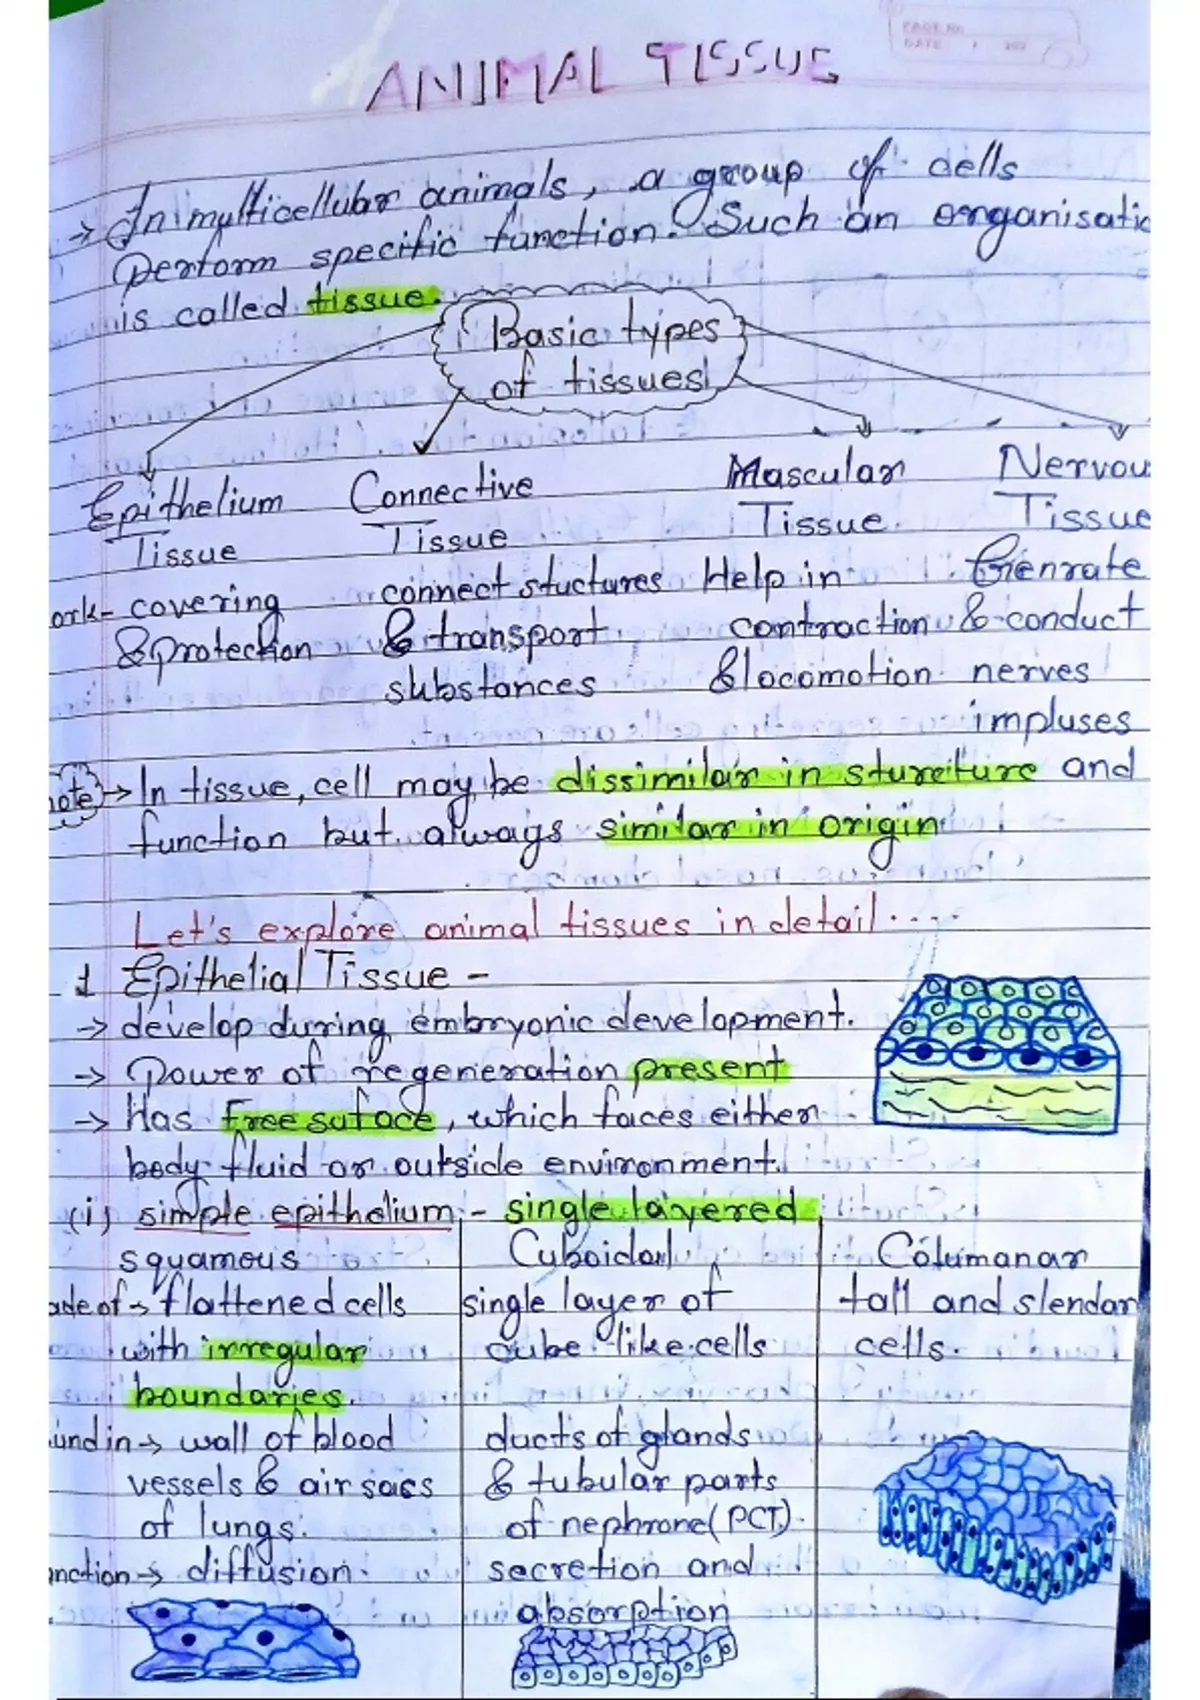 PAGE NO.
DATE
ANIMAL TISSUE
→ In multicellular animals, a group of cells
perform specific function. Such an organisatio
is called tissue.
Basic types
of tissues
Epithelium Tissue
Connective Tissue
Mascular Tissue
Nervou Tissue
ork- covering
& protection
connect stuctures
& transport
substances
Help in
contraction
& locomotion
Genrate
& conduct
nerves
impluses
note → In tissue, cell may be dissimilar in structure and
function but always similar in origin
Let's explore animal tissues in detail....
1 Epithelial Tissue -
→ develop during embryonic development.
→ Power of regeneration present
→ Has free suface, which faces either
body fluid or outside environment.
(i) simple epithelium - single layered
squamous
ade of → flattened cells
with irregular
boundaries.
und in → wall of blood
vessels & air sacs
of lungs.
nction → diffusion.
Cuboidal
single layer of
cube like cells
ducts of glands
& tubular parts
of nephrone (PCT).
secretion and
absorption
Columanar
tall and slendar
cells.